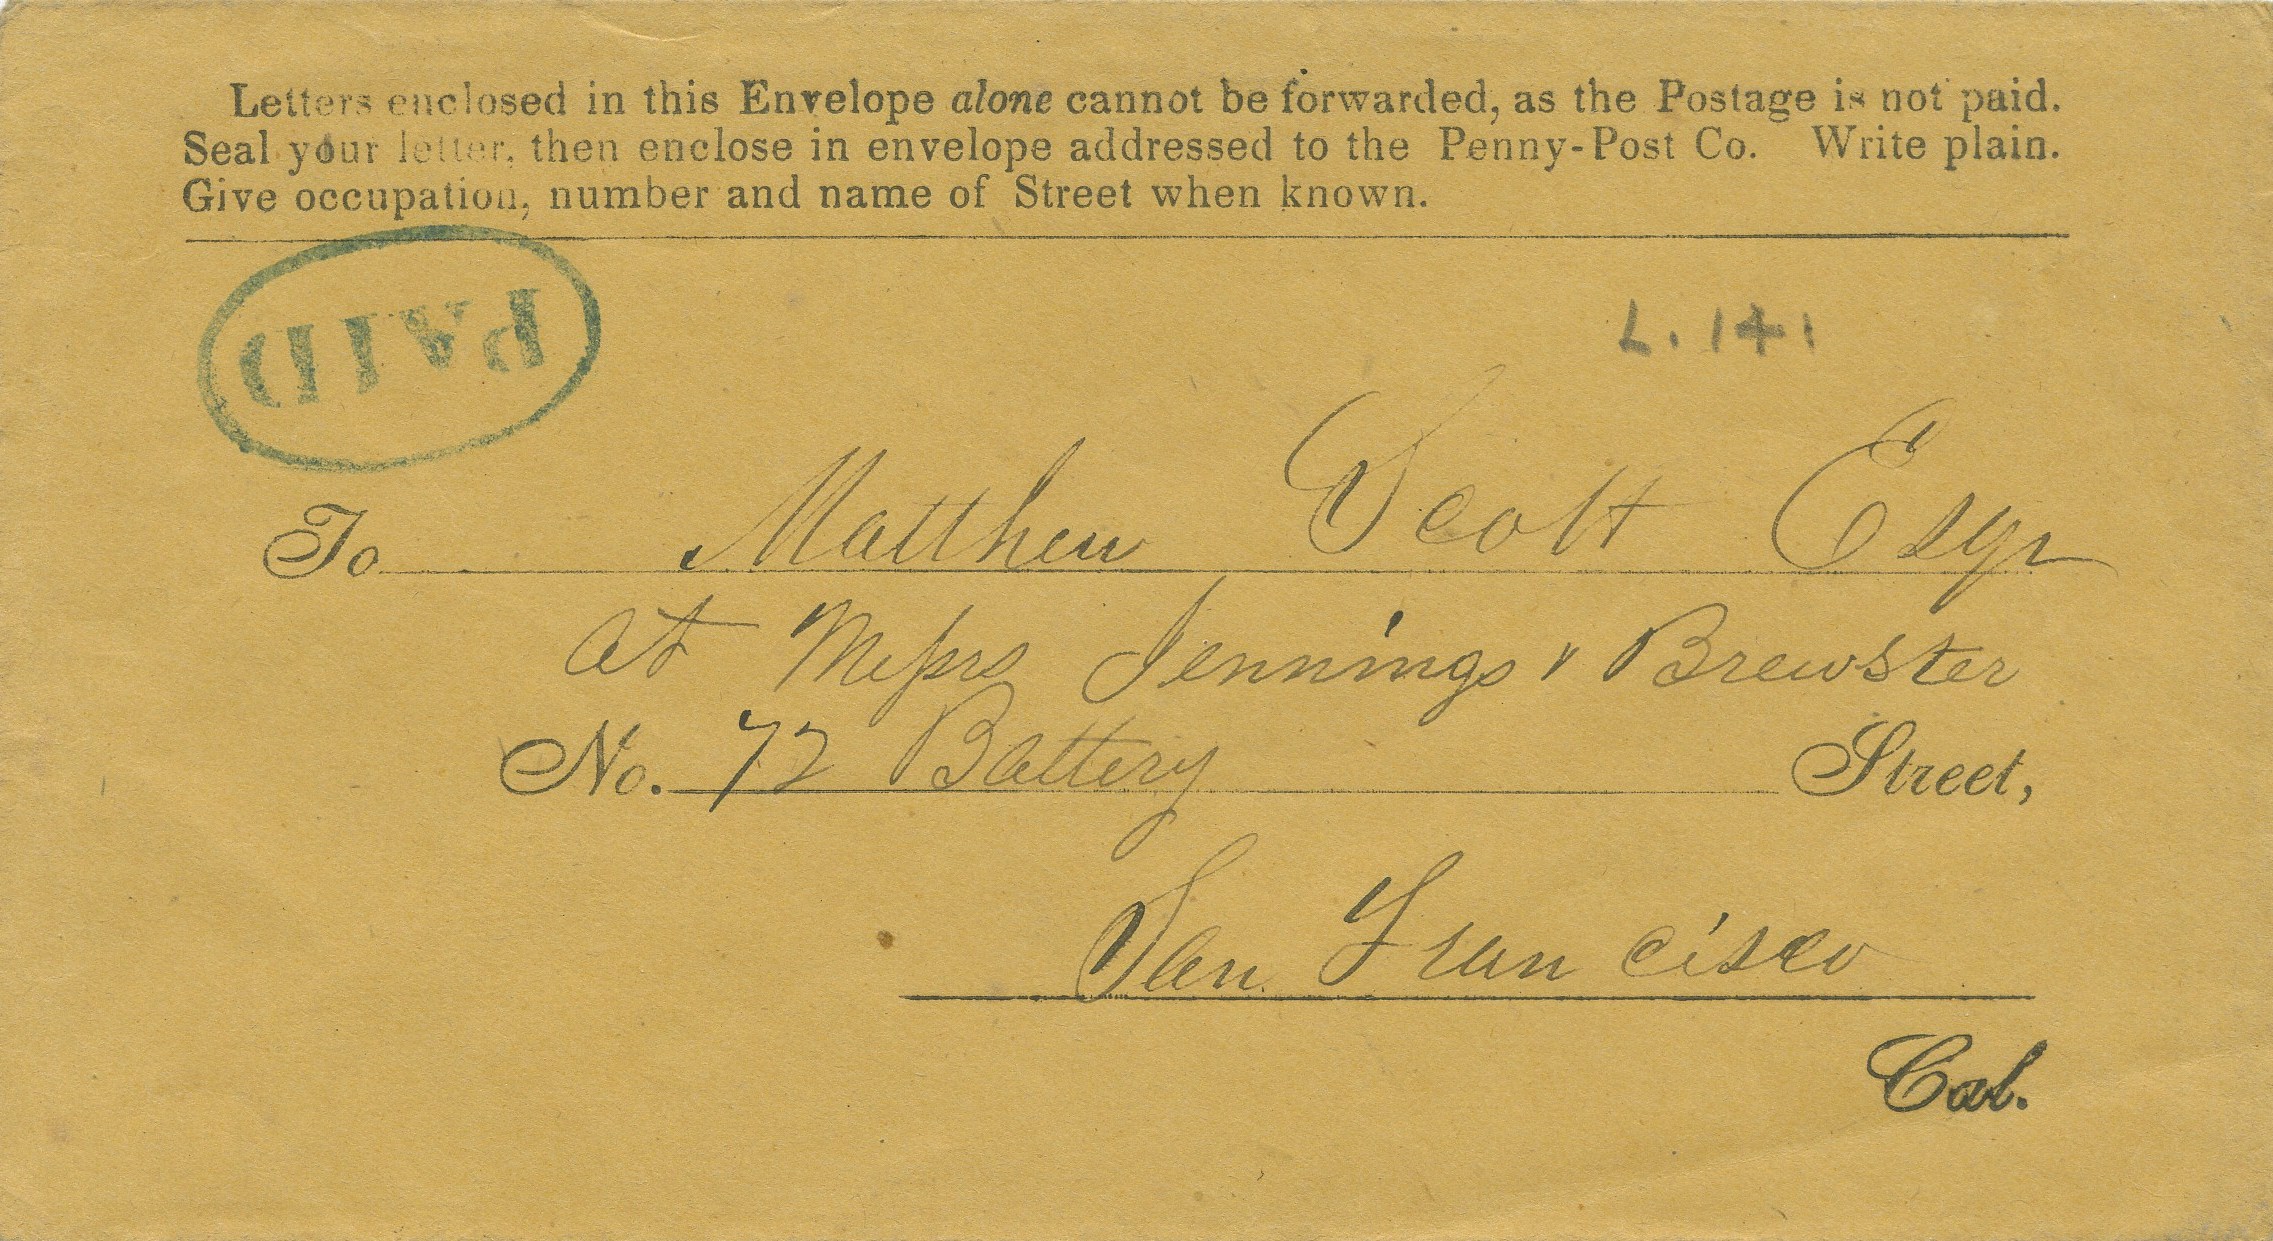 Letters enclosed in this Envelope alone cannot be forwarded, as the Postage is not paid.
Seal your letter, then enclose in envelope addressed to the Penny-Post Co. Write plain.
Give occupation, number and name of Street when known.
PAID
L. 141
To Matthew Scott Esqr
at Messrs Jennings & Brewster
No. 72 Battery Street,
San Francisco
Cal.